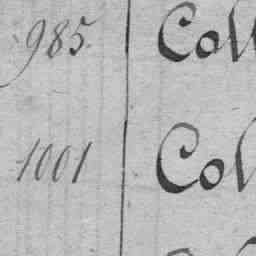 985. Coll
1001 Col